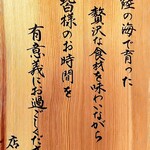 陸の海で育った
贅沢な食材を味わいながら
皆様のお時間を
有意義にお過ごしくださ
店